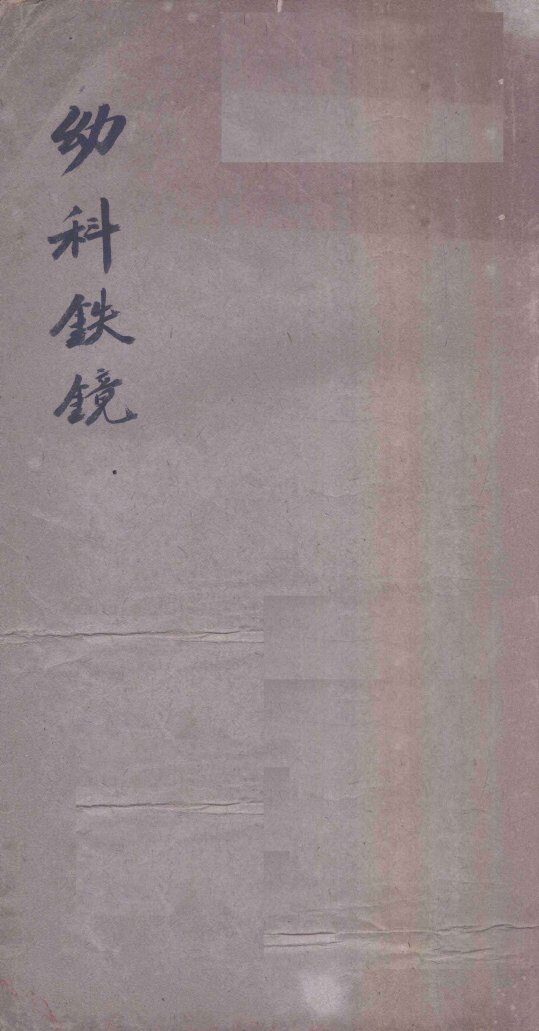 幼科鉄鏡